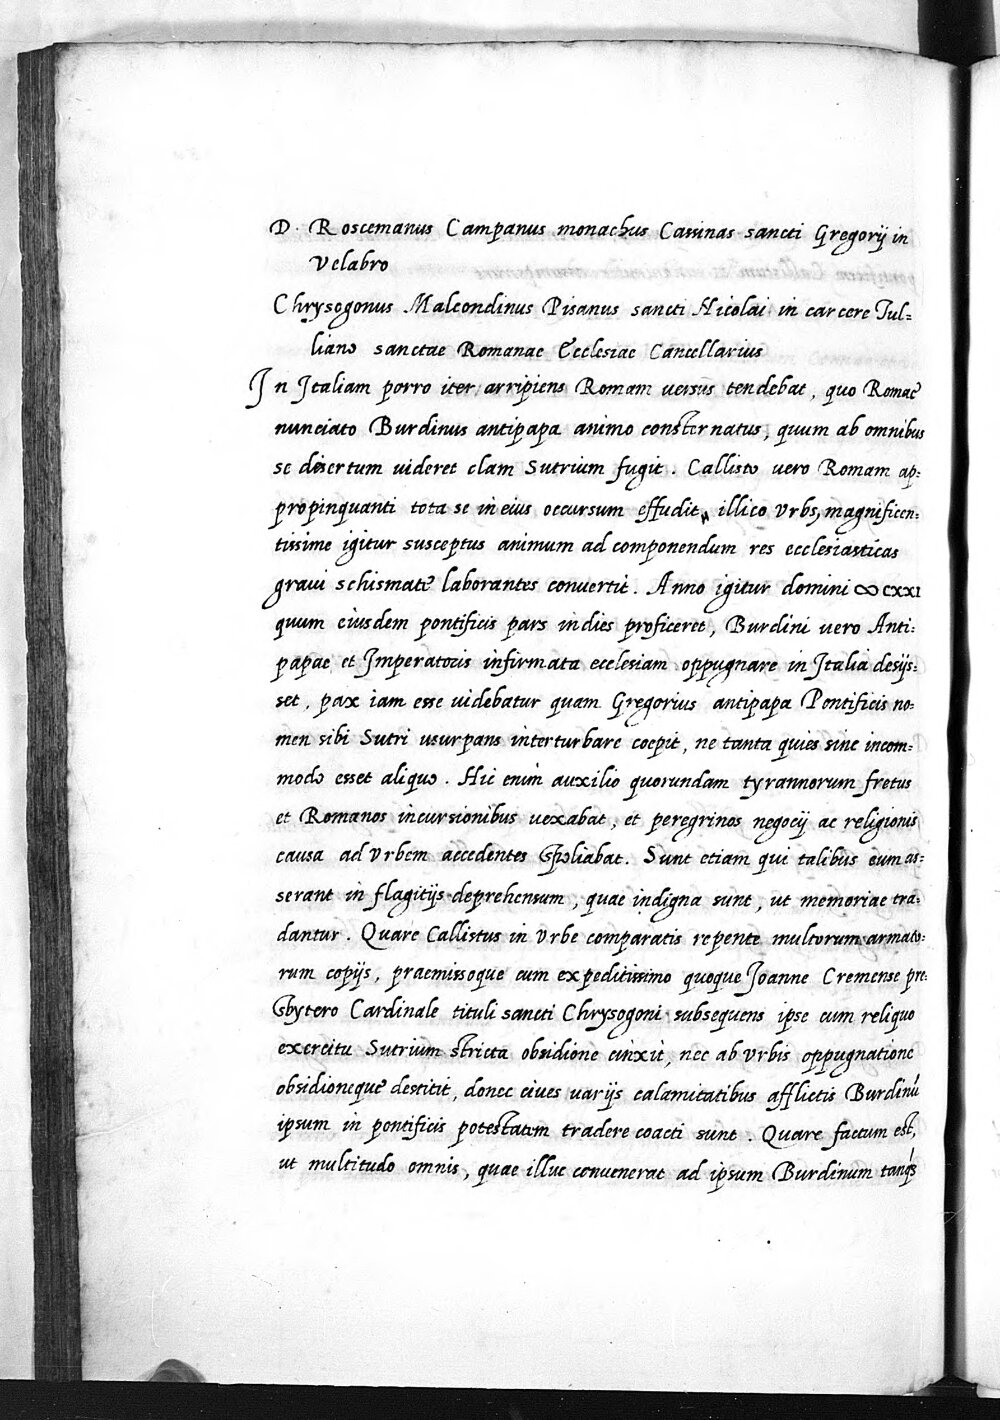 D. Roscemanus Campanus monachus Cassinas sancti Gregorij in
Velabro
Chrysogonus Malcondinus Pisanus sancti Nicolai in carcere Tul=
liano sanctae Romanae Ecclesiae Cancellarius
In Italiam porro iter arripiens Romam versus tendebat, quo Romae
nunciato Burdinus antipapa animo consternatus, quum ab omnibus
se desertum uideret clam Sutrium fugit. Callisto uero Romam ap=
propinquanti tota se in eius occursum effudit, illico Vrbs, magnificen=
tissime igitur susceptus animum ad componendum res ecclesiasticas
graui schismate laborantes conuertit. Anno igitur domini ∞CXXI
quum eiusdem pontificis pars indies proficeret, Burdini uero Anti=
papae et Imperatoris infirmata ecclesiam oppugnare in Italia desijs=
set, pax iam esse uidebatur quam Gregorius antipapa Pontificis no=
men sibi Sutri usurpans interturbare coepit, ne tanta quies sine incom=
modo esset aliquo. Hic enim auxilio quorundam tyrannorum fretus
et Romanos incursionibus uexabat, et peregrinos negocij ac religionis
causa ad Vrbem accedentes spoliabat. Sunt etiam qui talibus eum as=
serant in flagitijs deprehensum, quae indigna sunt, ut memoriae tra=
dantur. Quare Callistus in Vrbe comparatis repente multorum armato=
rum copijs, praemissoque cum expeditissimo quoque Joanne Cremense pre=
sbytero Cardinale tituli sancti Chrysogoni subsequens ipse cum reliquo
exercitu Sutrium stricta obsidione cinxit, nec ab Vrbis oppugnatione
obsidioneque destitit, donec ciues uarijs calamitatibus afflictis Burdinū
ipsum in pontificis potestatem tradere coacti sunt. Quare factum est,
ut multitudo omnis, quae illuc conuenerat ad ipsum Burdinum tanq́s